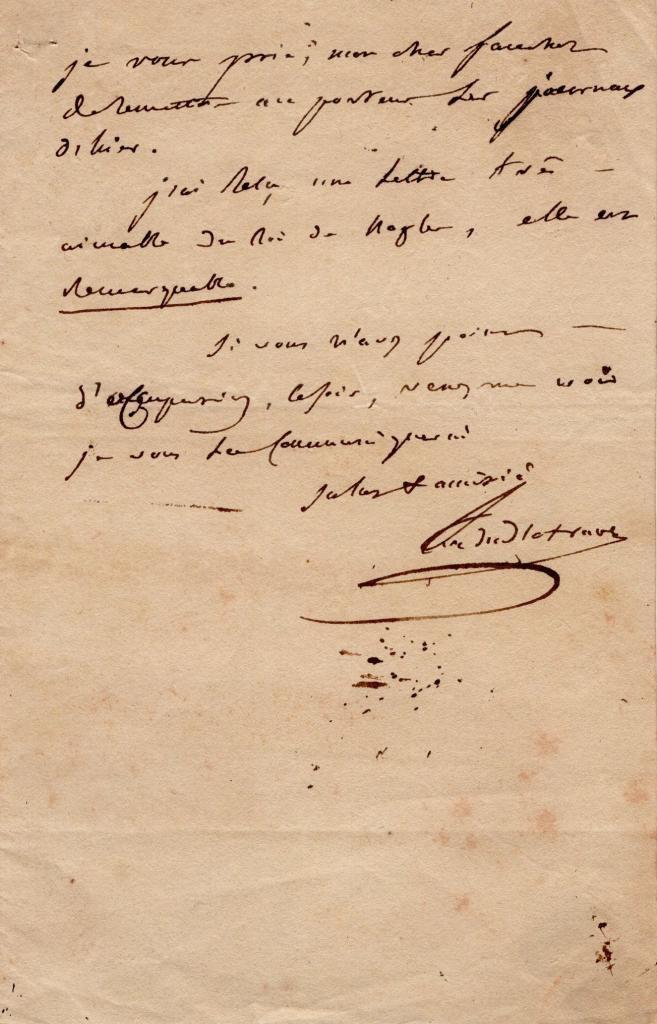 je vous prie, mon cher faucher
de remettre au porteur les journaux
d'hier.
j'ai reçu une lettre très
aimable du Roi de Naples, elle est
remarquable.
Si vous n'avez point
d'occupation, le soir, venez me voir
je vous la communiquerai
Salut & amitié